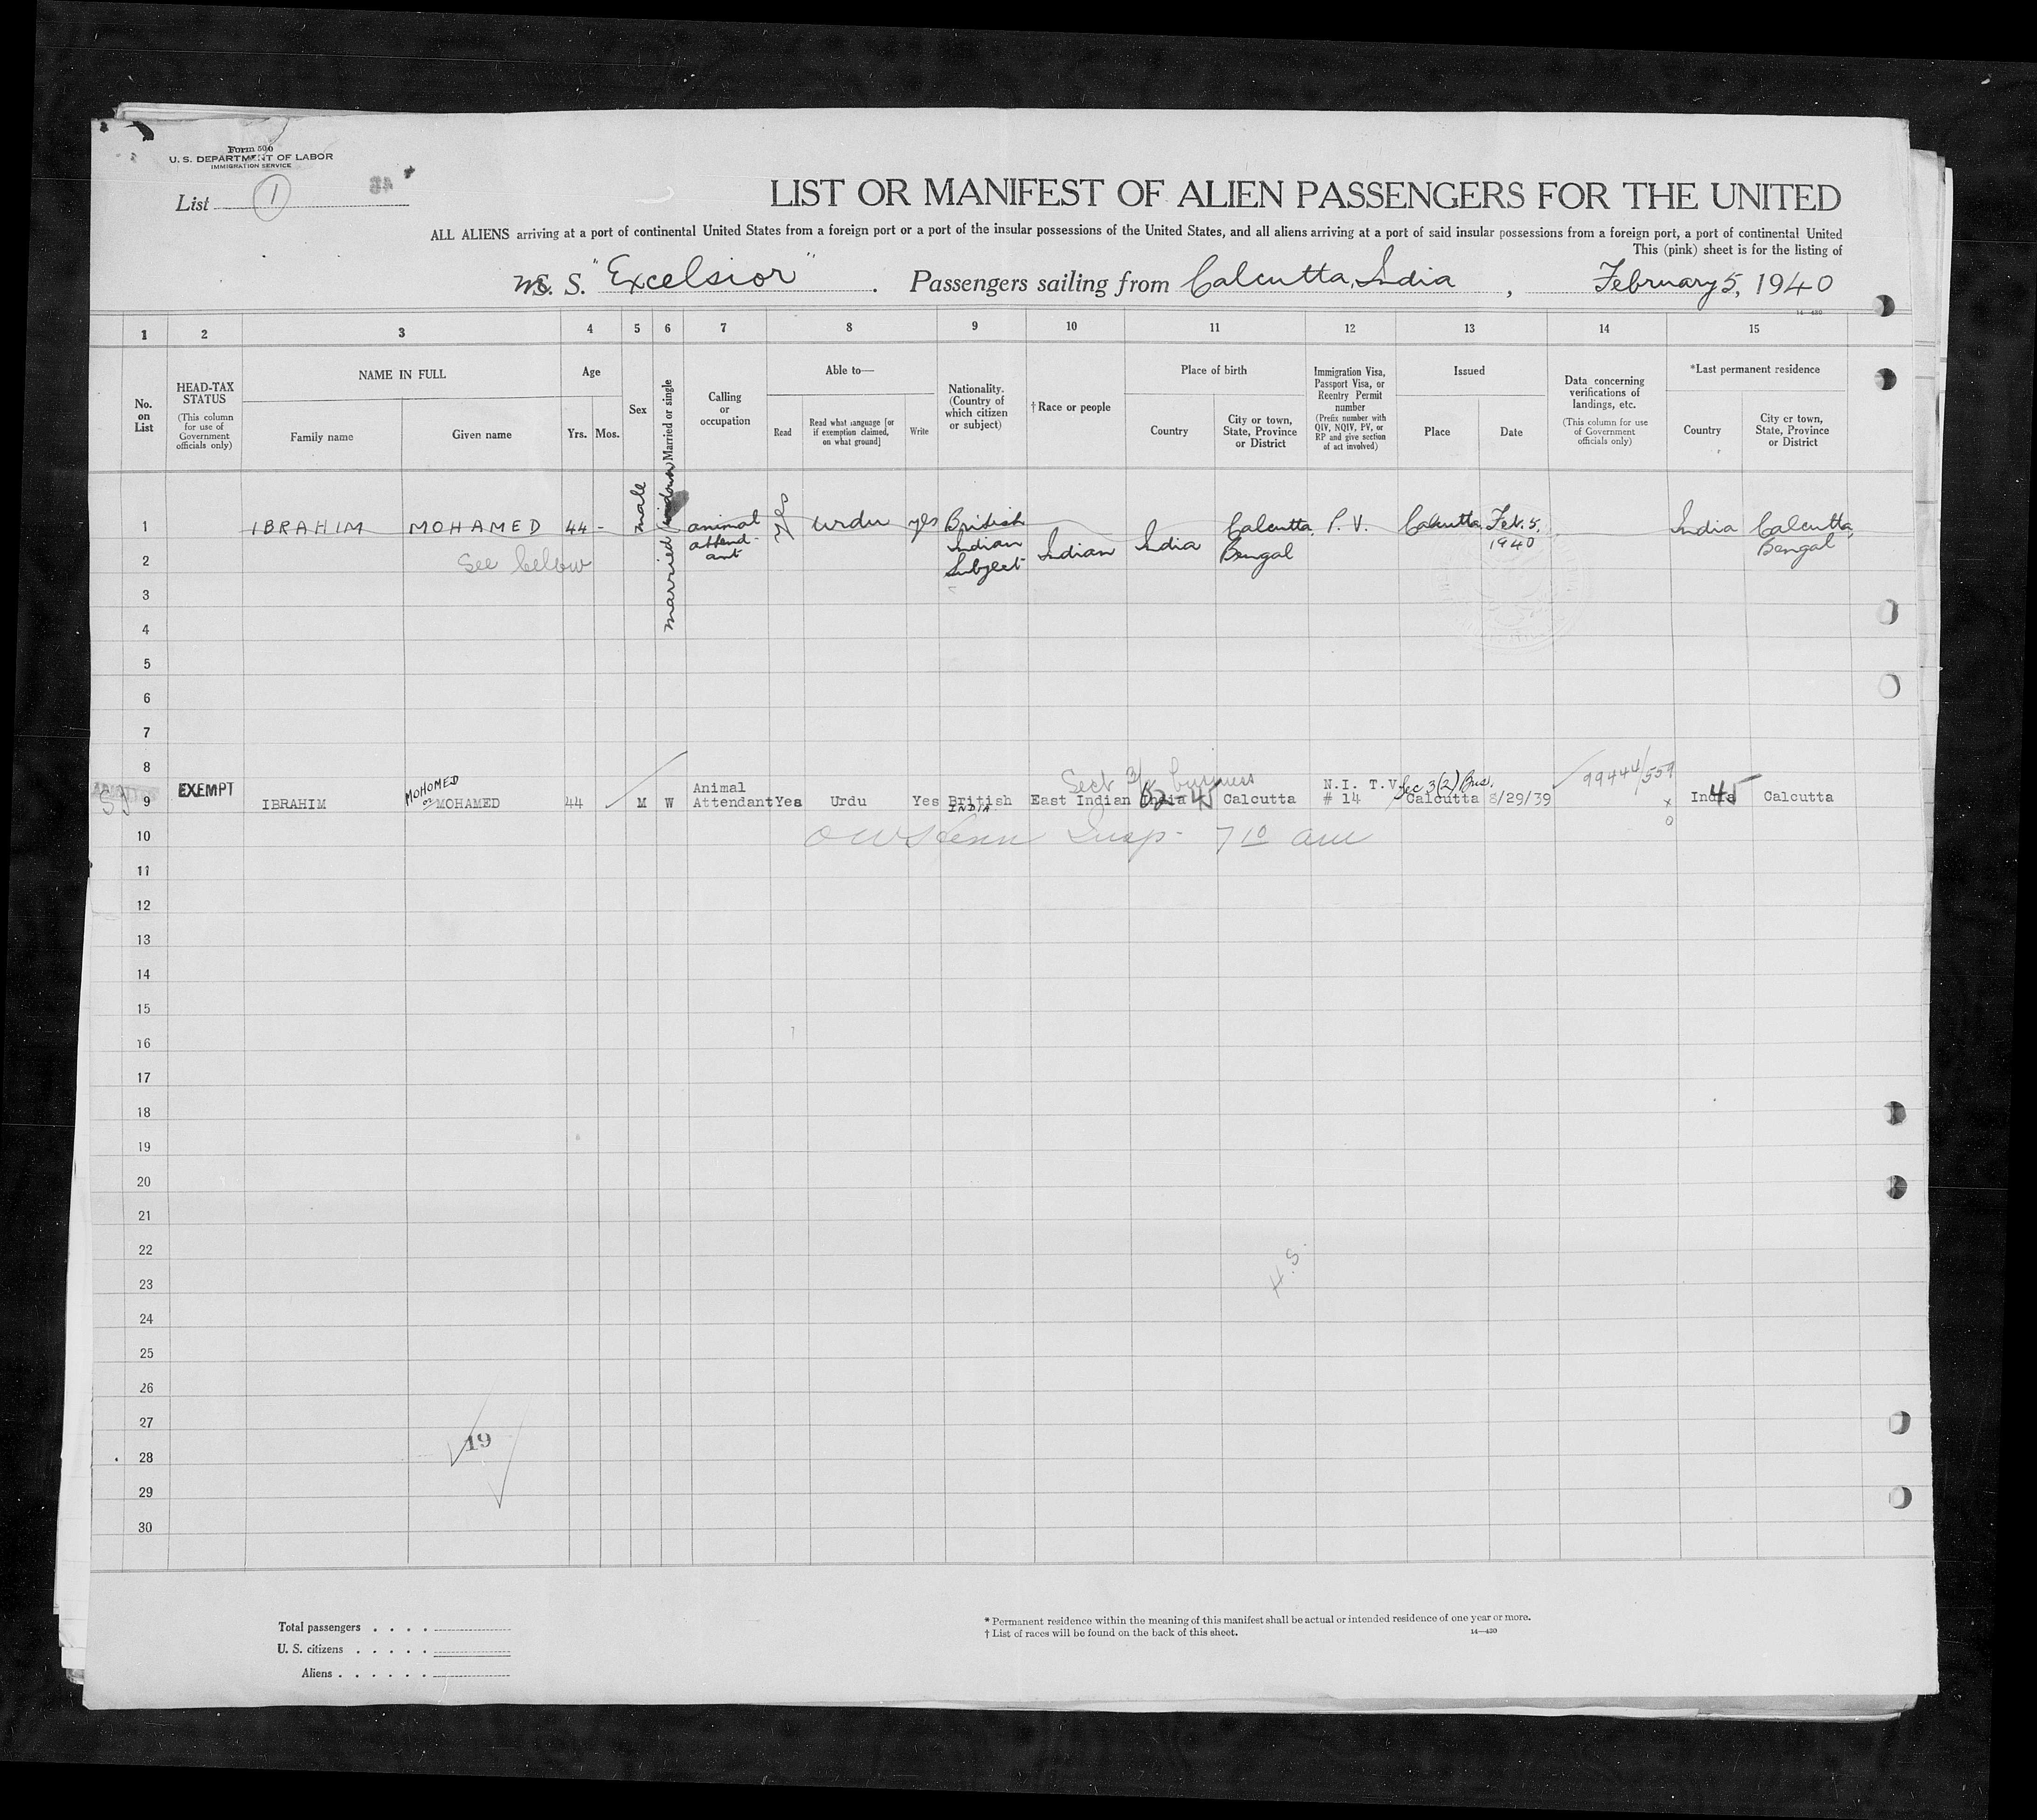 Form 500
U. S. DEPARTMENT OF LABOR
IMMIGRATION SERVICE
List 1
LIST OR MANIFEST OF ALIEN PASSENGERS FOR THE UNITED
ALL ALIENS arriving at a port of continental United States from a foreign port or a port of the insular possessions of the United States, and all aliens arriving at a port of said insular possessions from a foreign port, a port of continental United
This (pink) sheet is for the listing of
S. "Excelsior" . Passengers sailing from Calcutta, India , February 5, 1940
14—430
1 2 3 4 5 6 7 8 9 10 11 12 13 14 15
No. on List
HEAD-TAX STATUS
(This column for use of Government officials only)
NAME IN FULL
Family name Given name
Age
Yrs. Mos.
Sex
Married or single
Calling or occupation
Able to—
Read
Read what language [or if exemption claimed, on what ground]
Write
Nationality. (Country of which citizen or subject)
†Race or people
Place of birth
Country
City or town, State, Province or District
Immigration Visa, Passport Visa, or Reentry Permit number
(Prefix number with QIV, NQIV, PV, or RP and give section of act involved)
Issued
Place Date
Data concerning verifications of landings, etc.
(This column for use of Government officials only)
*Last permanent residence
Country
City or town, State, Province or District
1 IBRAHIM MOHAMED 44 - male married animal attend-ant yes urdu yes British Indian Subject Indian India Calcutta, Bengal P. V. Calcutta Feb. 5, 1940 India Calcutta, Bengal
2 See below
3
4
5
6
7
8
9 EXEMPT IBRAHIM MOHOMED or MOHAMED 44 M W Animal Attendant Yes Urdu Yes British INDIA East Indian India Calcutta N.I. T.V. # 14 Sec 3(2) Bus. Calcutta 8/29/39 99444/559 India 45 Calcutta
Sect 3/2 business
10 Insp. 7 10 am
11
12
13
14
15
16
17
18
19
20
21
22
23 H.S.
24
25
26
27
19
28
29
30
Total passengers . . . .
U. S. citizens . . . . .
Aliens . . . . . .
* Permanent residence within the meaning of this manifest shall be actual or intended residence of one year or more.
† List of races will be found on the back of this sheet. 14—430